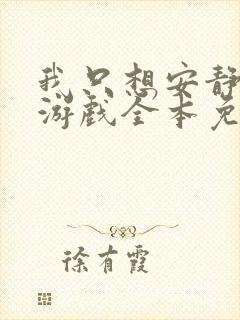 我只想安静
游戏全本免
徐有霞